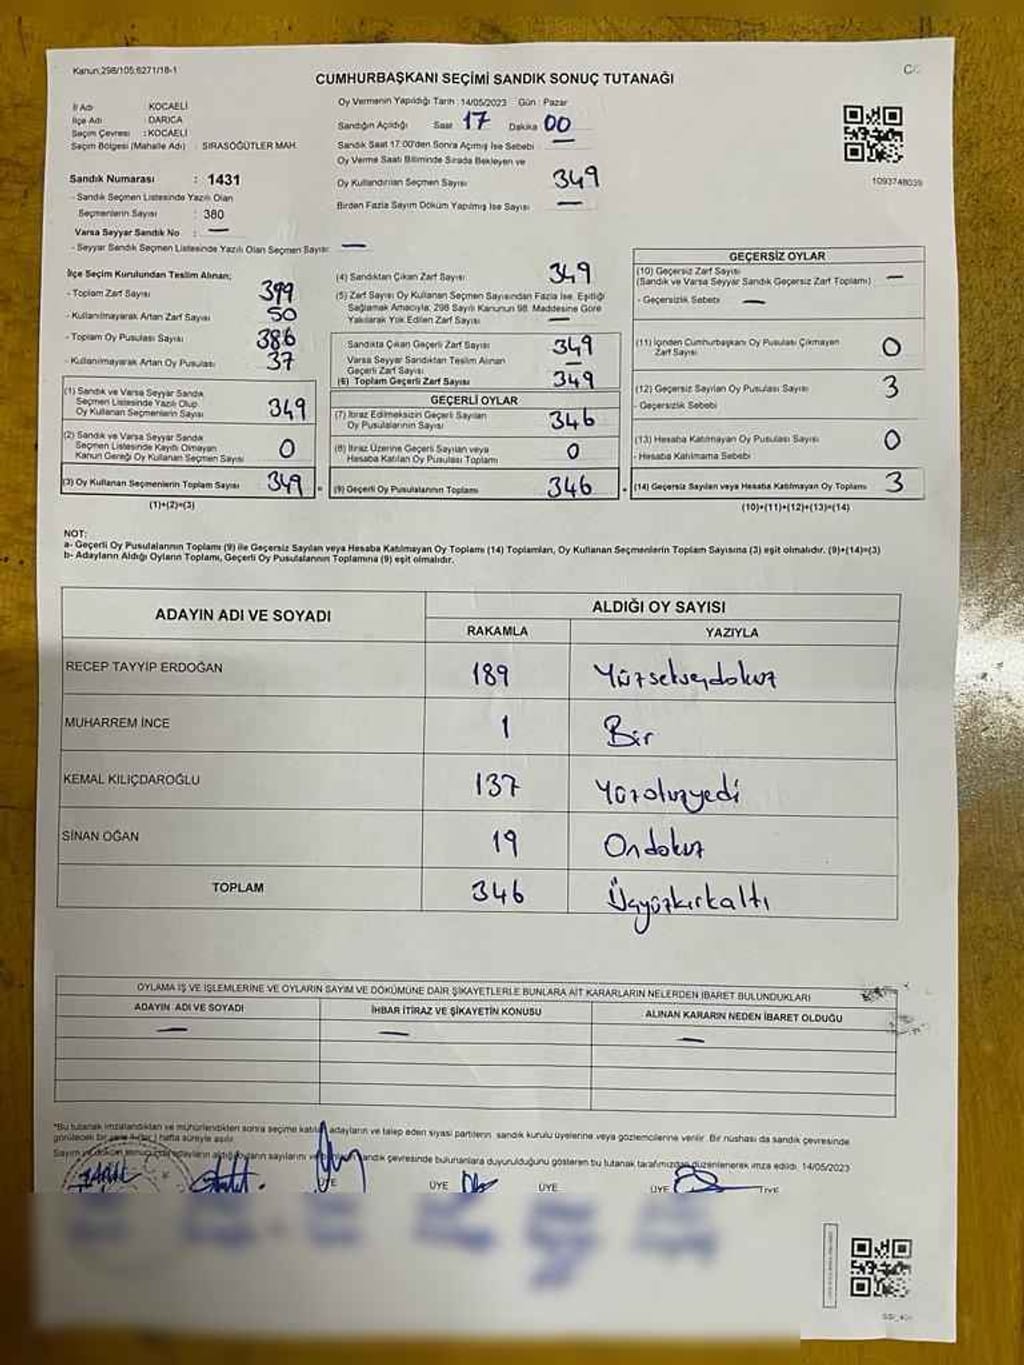 Kanun;298/105;6271/18-1
CUMHURBAŞKANI SEÇİMİ SANDIK SONUÇ TUTANAĞI
İl Adı : KOCAELİ
İlçe Adı : DARICA
Seçim Çevresi : KOCAELİ
Seçim Bölgesi (Mahalle Adı) : SIRASÖĞÜTLER MAH.
Sandık Numarası : 1431
- Sandık Seçmen Listesinde Yazılı Olan
Seçmenlerin Sayısı : 380
Varsa Seyyar Sandık No : —
- Seyyar Sandık Seçmen Listesinde Yazılı Olan Seçmen Sayısı: —
Oy Vermenin Yapıldığı Tarih : 14/05/2023 Gün : Pazar
Sandığın Açıldığı Saat 17 Dakika 00
Sandık Saat 17:00'den Sonra Açılmış İse Sebebi —
Oy Verme Saati Bitiminde Sırada Bekleyen ve
Oy Kullandırılan Seçmen Sayısı 349
Birden Fazla Sayım Döküm Yapılmış İse Sayısı —
1093748039
İlçe Seçim Kurulundan Teslim Alınan;
- Toplam Zarf Sayısı 399
- Kullanılmayarak Artan Zarf Sayısı 50
- Toplam Oy Pusulası Sayısı 386
- Kullanılmayarak Artan Oy Pusulası 37
(1) Sandık ve Varsa Seyyar Sandık
Seçmen Listesinde Yazılı Olup
Oy Kullanan Seçmenlerin Sayısı 349
(2) Sandık ve Varsa Seyyar Sandık
Seçmen Listesinde Kayıtlı Olmayan
Kanun Gereği Oy Kullanan Seçmen Sayısı 0
(3) Oy Kullanan Seçmenlerin Toplam Sayısı 349
(1)+(2)=(3)
(4) Sandıktan Çıkan Zarf Sayısı 349
(5) Zarf Sayısı Oy Kullanan Seçmen Sayısından Fazla İse, Eşitliği
Sağlamak Amacıyla; 298 Sayılı Kanunun 98. Maddesine Göre
Yakılarak Yok Edilen Zarf Sayısı —
Sandıkta Çıkan Geçerli Zarf Sayısı 349
Varsa Seyyar Sandıktan Teslim Alınan
Geçerli Zarf Sayısı —
(6) Toplam Geçerli Zarf Sayısı 349
GEÇERLİ OYLAR
(7) İtiraz Edilmeksizin Geçerli Sayılan
Oy Pusulalarının Sayısı 346
(8) İtiraz Üzerine Geçerli Sayılan veya
Hesaba Katılan Oy Pusulası Toplamı 0
= (9) Geçerli Oy Pusulalarının Toplamı 346
GEÇERSİZ OYLAR
(10) Geçersiz Zarf Sayısı
(Sandık ve Varsa Seyyar Sandık Geçersiz Zarf Toplamı) —
- Geçersizlik Sebebi : —
(11) İçinden Cumhurbaşkanı Oy Pusulası Çıkmayan
Zarf Sayısı 0
(12) Geçersiz Sayılan Oy Pusulası Sayısı 3
- Geçersizlik Sebebi :
(13) Hesaba Katılmayan Oy Pusulası Sayısı 0
- Hesaba Katılmama Sebebi :
+ (14) Geçersiz Sayılan veya Hesaba Katılmayan Oy Toplamı 3
(10)+(11)+(12)+(13)=(14)
NOT:
a- Geçerli Oy Pusulalarının Toplamı (9) ile Geçersiz Sayılan veya Hesaba Katılmayan Oy Toplamı (14) Toplamları, Oy Kullanan Seçmenlerin Toplam Sayısına (3) eşit olmalıdır. (9)+(14)=(3)
b- Adayların Aldığı Oyların Toplamı, Geçerli Oy Pusulalarının Toplamına (9) eşit olmalıdır.
ADAYIN ADI VE SOYADI ALDIĞI OY SAYISI
RAKAMLA YAZIYLA
RECEP TAYYİP ERDOĞAN 189 Yüzseksendokuz
MUHARREM İNCE 1 Bir
KEMAL KILIÇDAROĞLU 137 Yüzotuzyedi
SİNAN OĞAN 19 Ondokuz
TOPLAM 346 Üçyüzkırkaltı
OYLAMA İŞ VE İŞLEMLERİNE VE OYLARIN SAYIM VE DÖKÜMÜNE DAİR ŞİKAYETLERLE BUNLARA AİT KARARLARIN NELERDEN İBARET BULUNDUKLARI
ADAYIN ADI VE SOYADI İHBAR İTİRAZ VE ŞİKAYETİN KONUSU ALINAN KARARIN NEDEN İBARET OLDUĞU
— — —
*Bu tutanak imzalandıktan ve mühürlendikten sonra seçime katılan adayların ve talep eden siyasi partilerin sandık kurulu üyelerine veya gözlemcilerine verilir. Bir nüshası da sandık çevresinde
görülecek bir yere 1 (bir) hafta süreyle asılır.
Sayım ve döküm sonucu adayların aldığı oyların sayılarını ve sandık çevresinde bulunanlara duyurulduğunu gösteren bu tutanak tarafımızdan düzenlenerek imza edildi. 14/05/2023
ÜYE ÜYE ÜYE ÜYE ÜYE